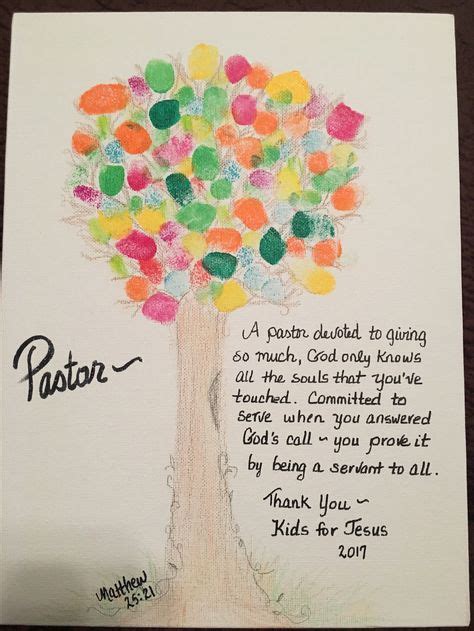 Pastor~
A pastor devoted to giving
so much, God only knows
all the souls that you've
touched. Committed to
serve when you answered
God's call ~ you prove it
by being a servant to all.
Thank You~
Kids for Jesus
2017
Matthew
25:21